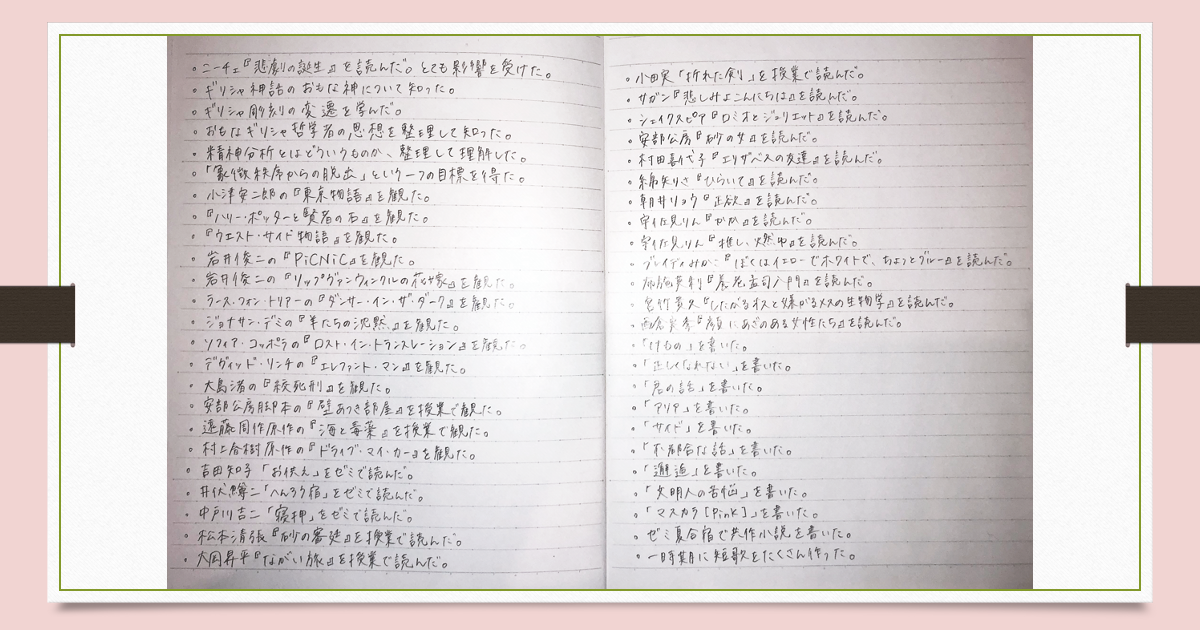 。ニーチェ『悲劇の誕生』を読んだ。とても影響を受けた。
。ギリシャ神話のおもな神について知った。
。ギリシャ彫刻の変遷を学んだ。
。おもなギリシャ哲学者の思想を整理して知った。
。精神分析とはどういうものか、整理して理解した。
。「象徴秩序からの脱出」という一つの目標を得た。
。小津安二郎の『東京物語』を観た。
。『ハリー・ポッターと賢者の石』を観た。
。『ウエスト・サイド物語』を観た。
。岩井俊二の『PiCNiC』を観た。
。岩井俊二の『リップヴァンウィンクルの花嫁』を観た。
。ラース・フォン・トリアーの『ダンサー・イン・ザ・ダーク』を観た。
。ジョナサン・デミの『羊たちの沈黙』を観た。
。ソフィア・コッポラの『ロスト・イン・トランスレーション』を観た。
。デヴィッド・リンチの『エレファント・マン』を観た。
。大島渚の『絞死刑』を観た。
。安部公房脚本の『壁あつき部屋』を授業で観た。
。遠藤周作原作の『海と毒薬』を授業で観た。
。村上春樹原作の『ドライブ・マイ・カー』を観た。
。吉田知子「お供え」をゼミで読んだ。
。井伏鱒二「へんろう宿」をゼミで読んだ。
。中戸川吉二「寝押」をゼミで読んだ。
。松本清張『砂の審廷』を授業で読んだ。
。大岡昇平『ながい旅』を授業で読んだ。
。小田実「折れた剣」を授業で読んだ。
。サガン『悲しみよこんにちは』を読んだ。
。シェイクスピア『ロミオとジュリエット』を読んだ。
。安部公房『砂の女』を読んだ。
。村田喜代子『エリザベスの友達』を読んだ。
。綿矢りさ『ひらいて』を読んだ。
。朝井リョウ『正欲』を読んだ。
。宇佐見りん『かか』を読んだ。
。宇佐見りん『推し、燃ゆ』を読んだ。
。ブレイディみかこ『ぼくはイエローでホワイトで、ちょっとブルー』を読んだ。
。『養老孟司入門』を読んだ。
。宮竹貴久『したがるオスと嫌がるメスの生物学』を読んだ。
。『顔にあざのある女性たち』を読んだ。
。「けもの」を書いた。
。「正しくなれない」を書いた。
。「君の話」を書いた。
。「アリア」を書いた。
。「サイド」を書いた。
。「不都合な話」を書いた。
。「邂逅」を書いた。
。「文明人の苦悩」を書いた。
。「マスカラ[Pink]」を書いた。
。ゼミ夏合宿で共作小説を書いた。
。一時期に短歌をたくさん作った。